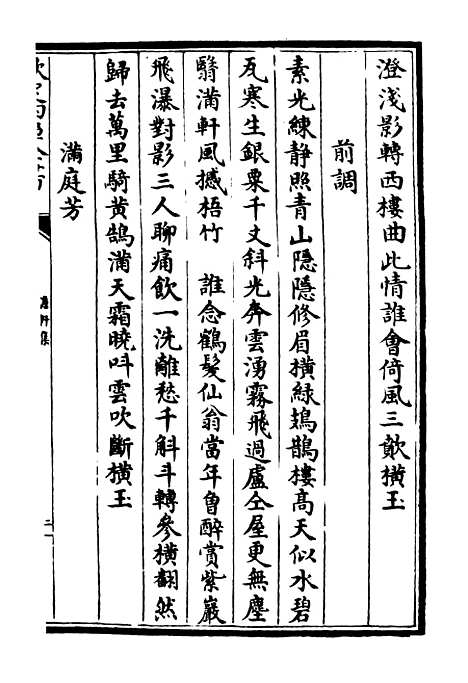 澄淺影轉西樓曲此情誰會倚風三歎橫玉
前調
素光練靜照青山隱隱修眉橫綠鳷鵲樓高天似水碧
瓦寒生銀粟千丈斜光奔雲湧霧飛過盧仝屋更無塵
翳滿軒風撼梧竹 誰念鶴髮仙翁當年曾醉賞紫巖
飛瀑對影三人聊痛飲一洗離愁千斛斗轉參橫翻然
歸去萬里騎黃鵠滿天霜曉呌雲吹斷橫玉
滿庭芳